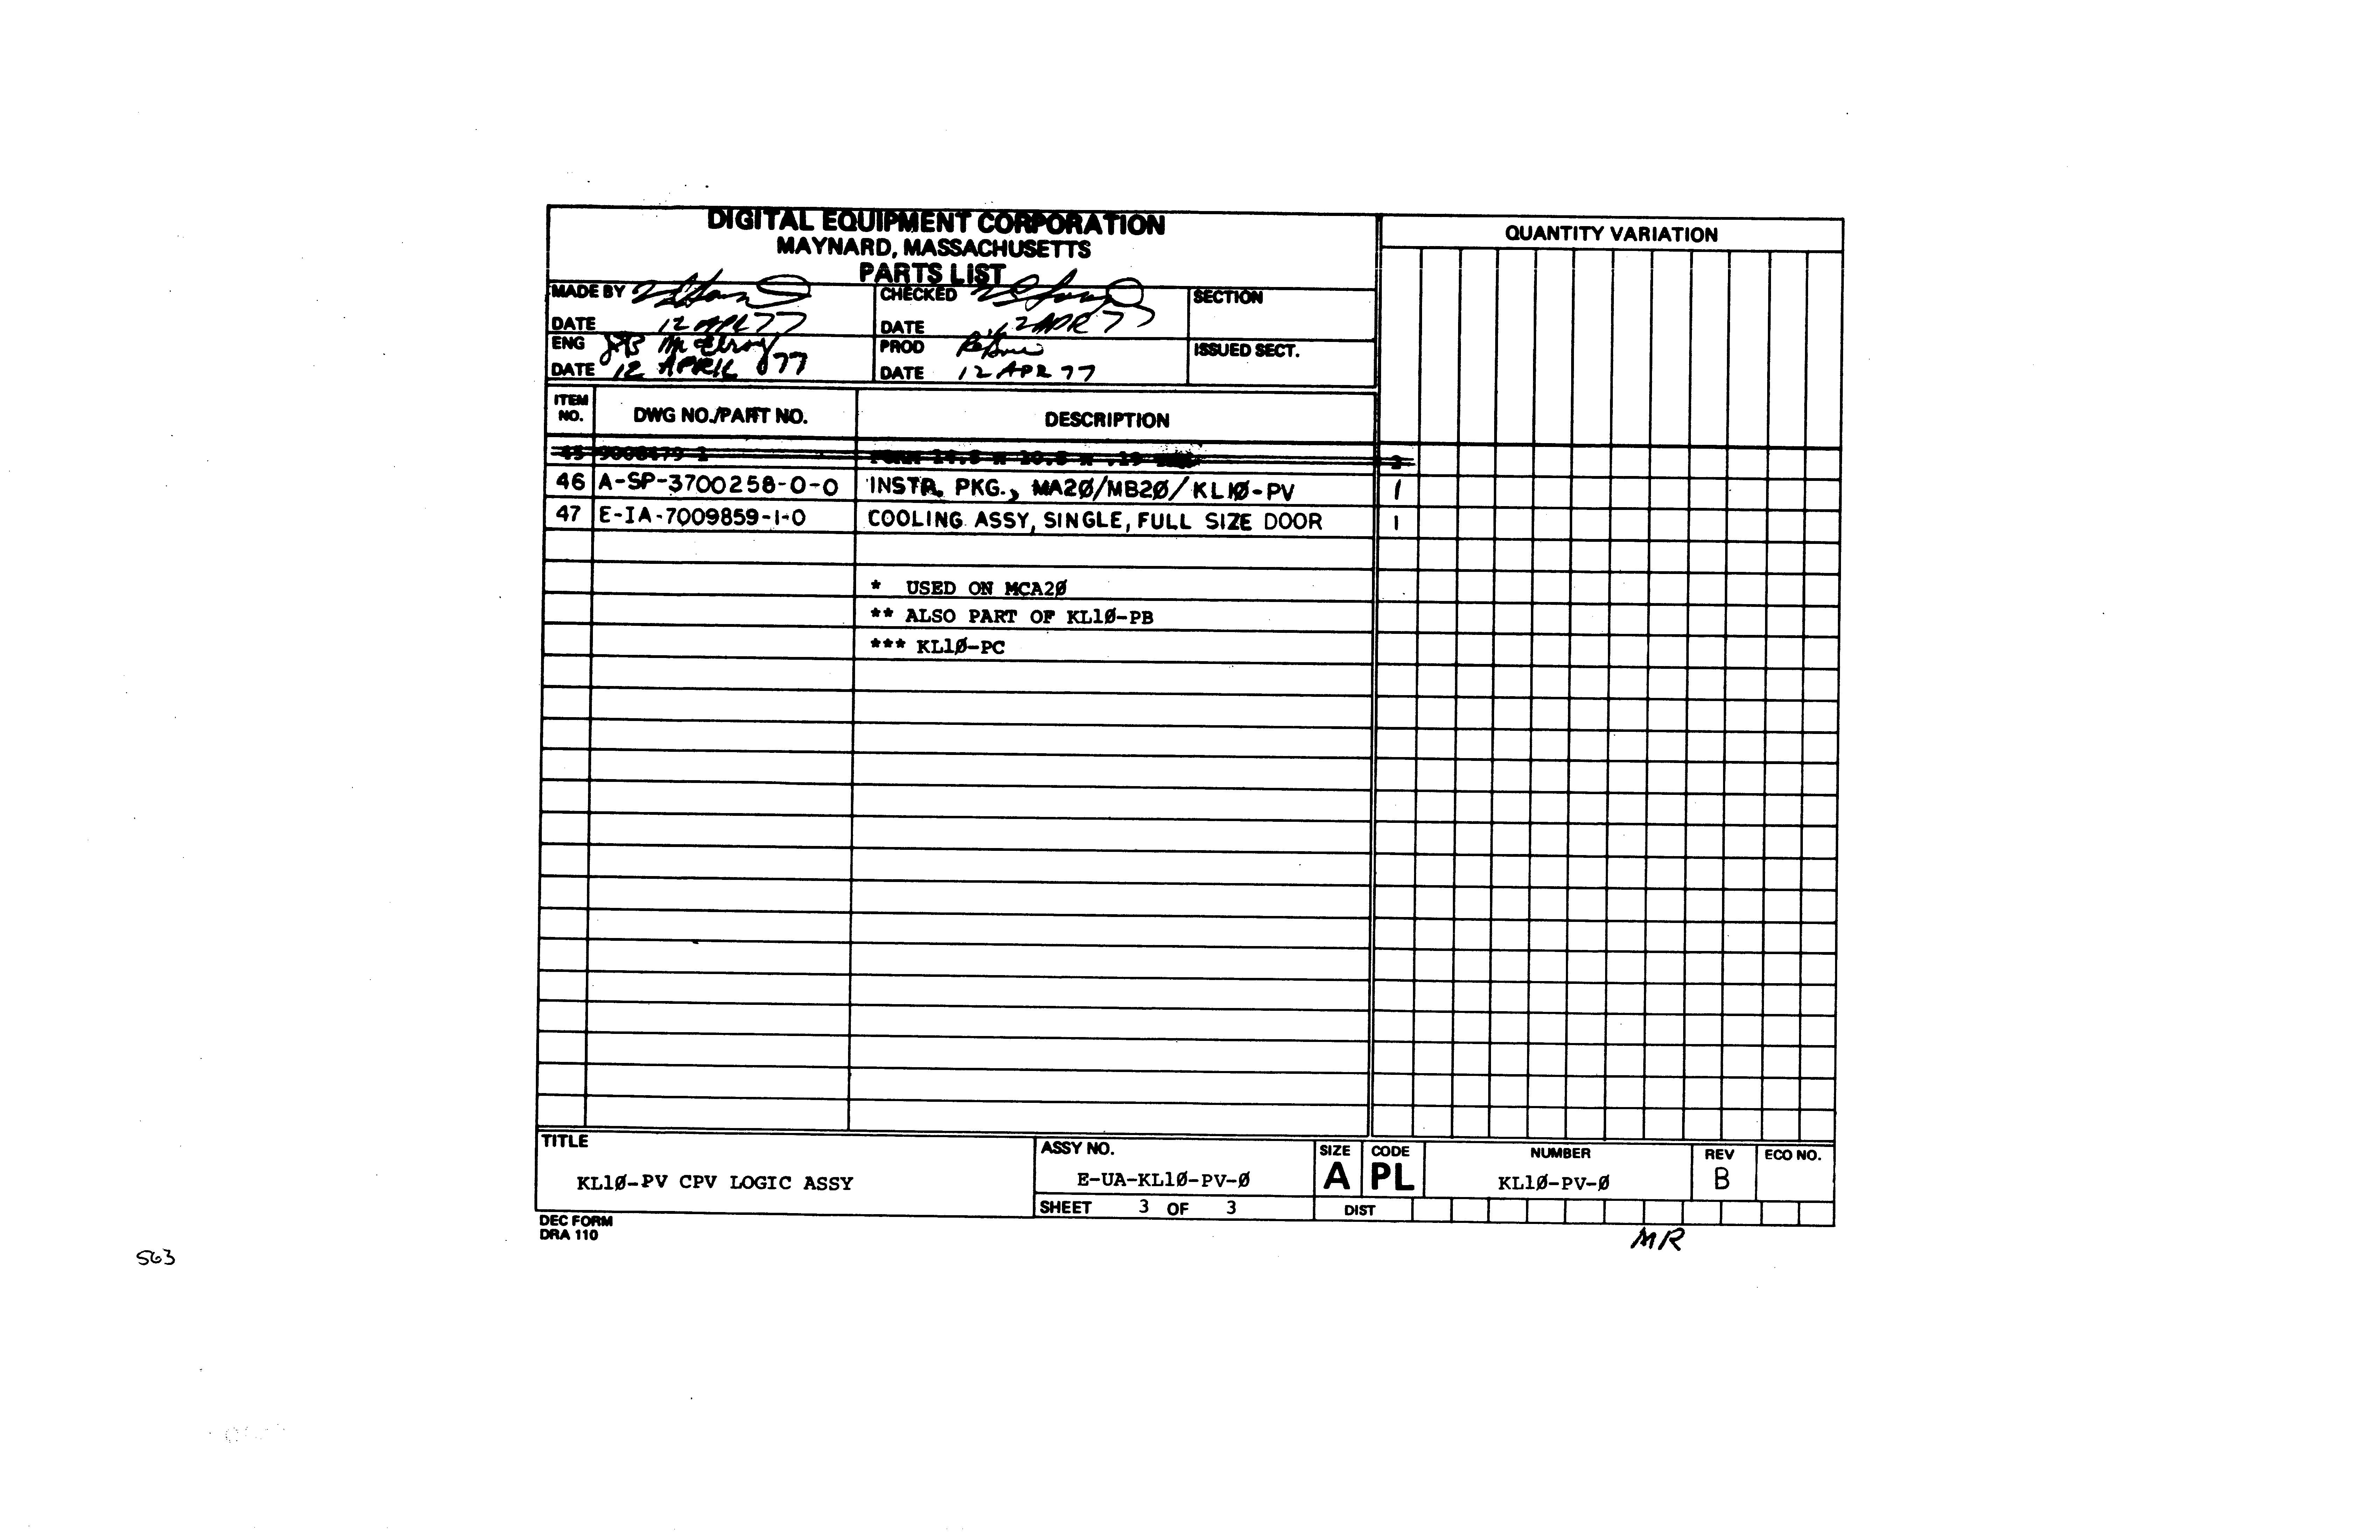 DIGITAL EQUIPMENT CORPORATION
MAYNARD, MASSACHUSETTS
PARTS LIST
QUANTITY VARIATION
MADE BY
CHECKED
SECTION
DATE 12 APR 77
DATE 12 APR 77
ENG JB McElroy
PROD
ISSUED SECT.
DATE 12 APRIL 77
DATE 12 APR 77
ITEM NO.
DWG NO./PART NO.
DESCRIPTION
45 9008479-1 FOAM 14.8 X 10.8 X .19 2
46 A-SP-3700258-0-0 INSTR. PKG., MA20/MB20/KL10-PV 1
47 E-IA-7009859-1-0 COOLING ASSY, SINGLE, FULL SIZE DOOR 1
* USED ON MCA2Ø
** ALSO PART OF KL1Ø-PB
*** KL1Ø-PC
TITLE
KL1Ø-PV CPV LOGIC ASSY
ASSY NO.
E-UA-KL1Ø-PV-Ø
SHEET 3 OF 3
SIZE
A
CODE
PL
NUMBER
KL1Ø-PV-Ø
REV
B
ECO NO.
DIST
DEC FORM
DRA 110
MR
563